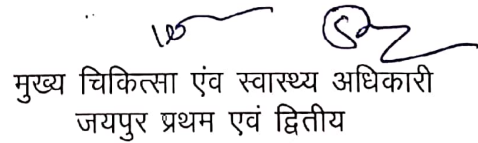 मुख्य चिकित्सा एंव स्वास्थ्य अधिकारी
जयपुर प्रथम एवं द्वितीय